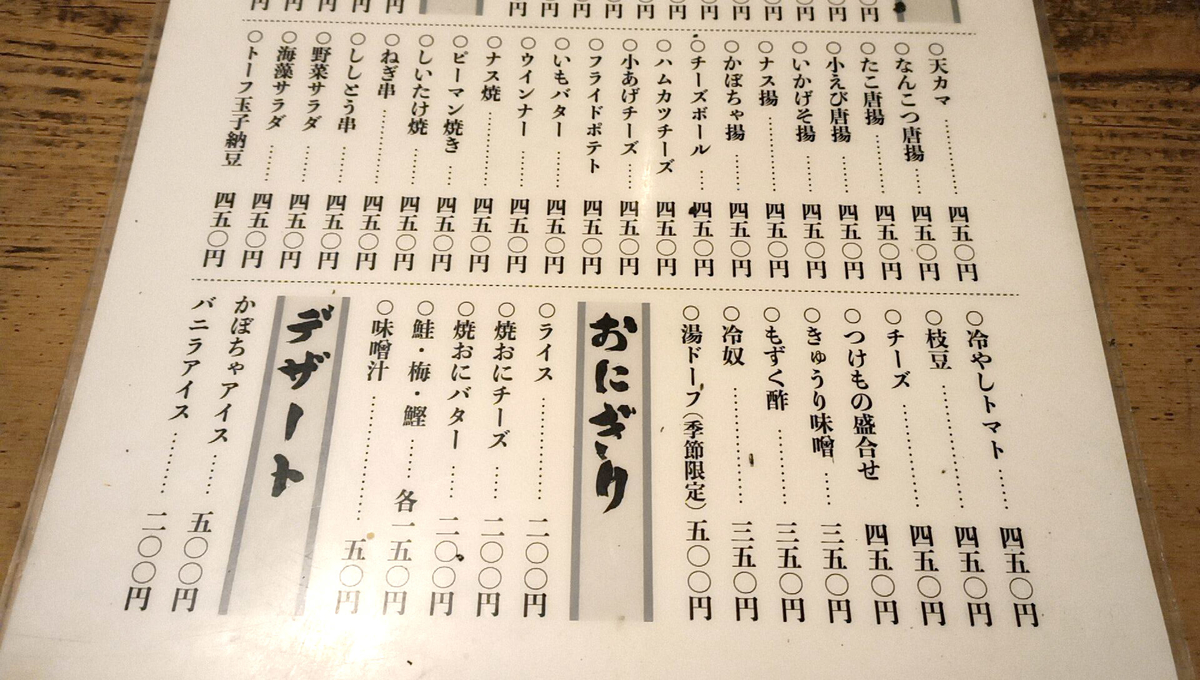 ○天カマ………四五〇円
○なんこつ唐揚…四五〇円
○たこ唐揚………四五〇円
○小えび唐揚……四五〇円
○いかげそ揚……四五〇円
○ナス揚…………四五〇円
○かぼちゃ揚……四五〇円
○チーズボール…四五〇円
○ハムカツチーズ 四五〇円
○小あげチーズ…四五〇円
○フライドポテト 四五〇円
○いもバター……四五〇円
○ウインナー……四五〇円
○ナス焼…………四五〇円
○ピーマン焼き…四五〇円
○しいたけ焼……四五〇円
○ねぎ串…………四五〇円
○ししとう串……四五〇円
○野菜サラダ……四五〇円
○海藻サラダ……四五〇円
○トーフ玉子納豆 四五〇円
○冷やしトマト…四五〇円
○枝豆……………四五〇円
○チーズ…………四五〇円
○つけもの盛合せ 四五〇円
○きゅうり味噌…三五〇円
○もずく酢………三五〇円
○冷奴……………三五〇円
○湯ドーフ(季節限定)五〇〇円
おにぎり
○ライス…………二〇〇円
○焼おにチーズ…二〇〇円
○焼おにバター…二〇〇円
○鮭・梅・鰹……各一五〇円
○味噌汁…………五〇円
デザート
かぼちゃアイス…五〇〇円
バニラアイス……二〇〇円